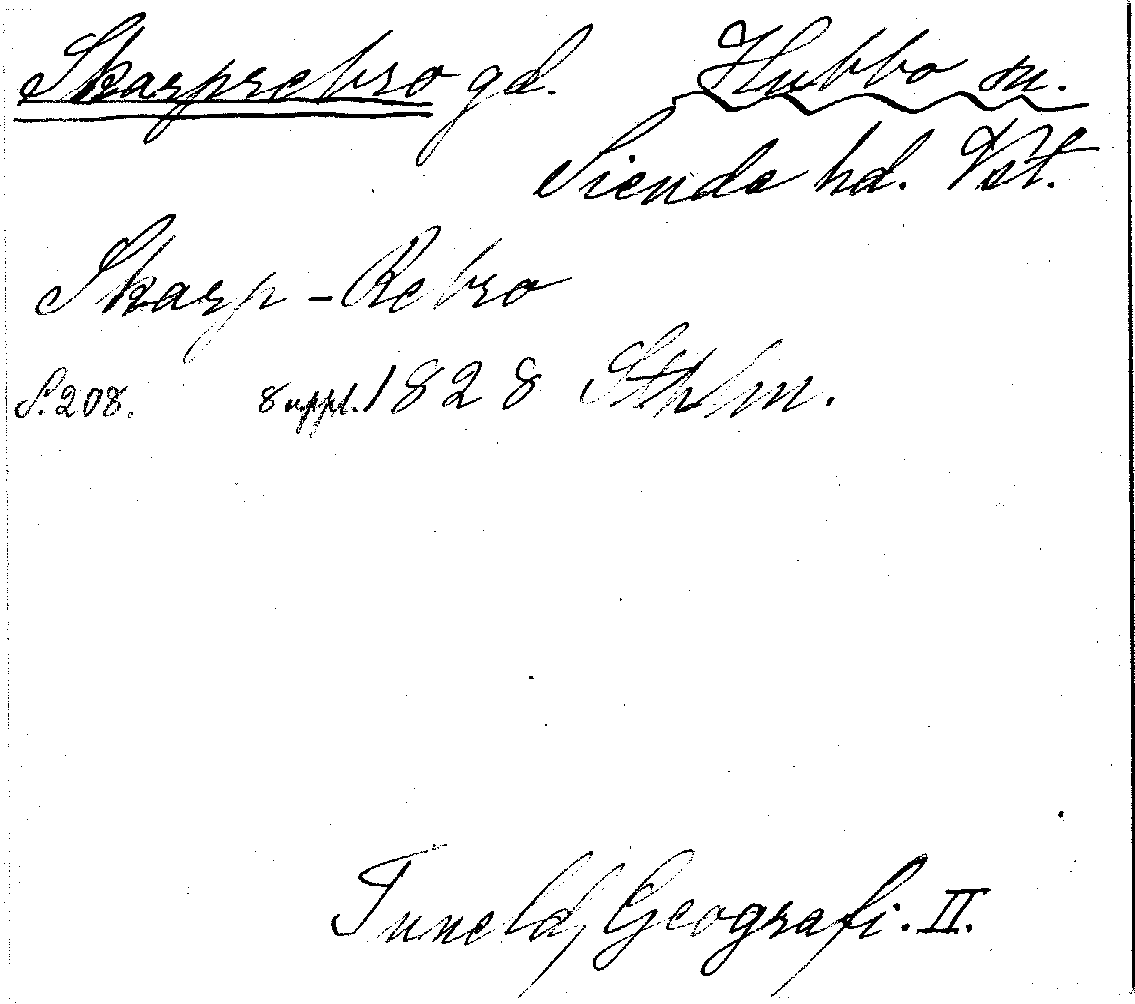 Skarprebro gd. Hubbo sn.
Siende hd. Vst.
Skarp-Rebro
S. 208. Suppl. 1828 Sthlm.
Tuneld, Geografi. II.